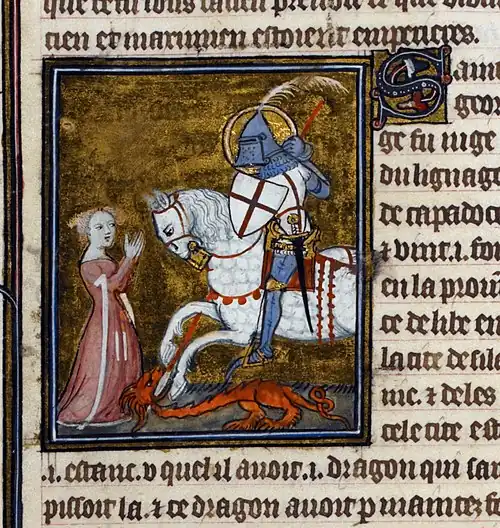 prendre ce que
cien et maximien estoient empereres.
Saint
geor
ge fu iuge
du lignage
de capadoc
⁊ vint .i. foi
en la prouin
ce de libe en
la cite de sile
nie. ⁊ deles
cele cite est
.i. estanc. v quel il auoit .i. dragon qui
pissoit la. ⁊ ce dragon auoit p maintes